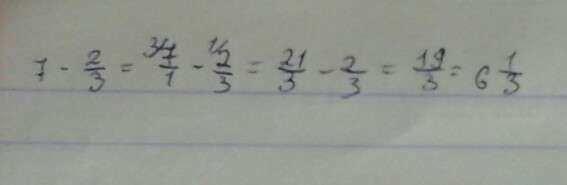 7 - 2/3 = ³⁄7/1 - ¹⁄2/3 = 21/3 - 2/3 = 19/3 = 6 1/3